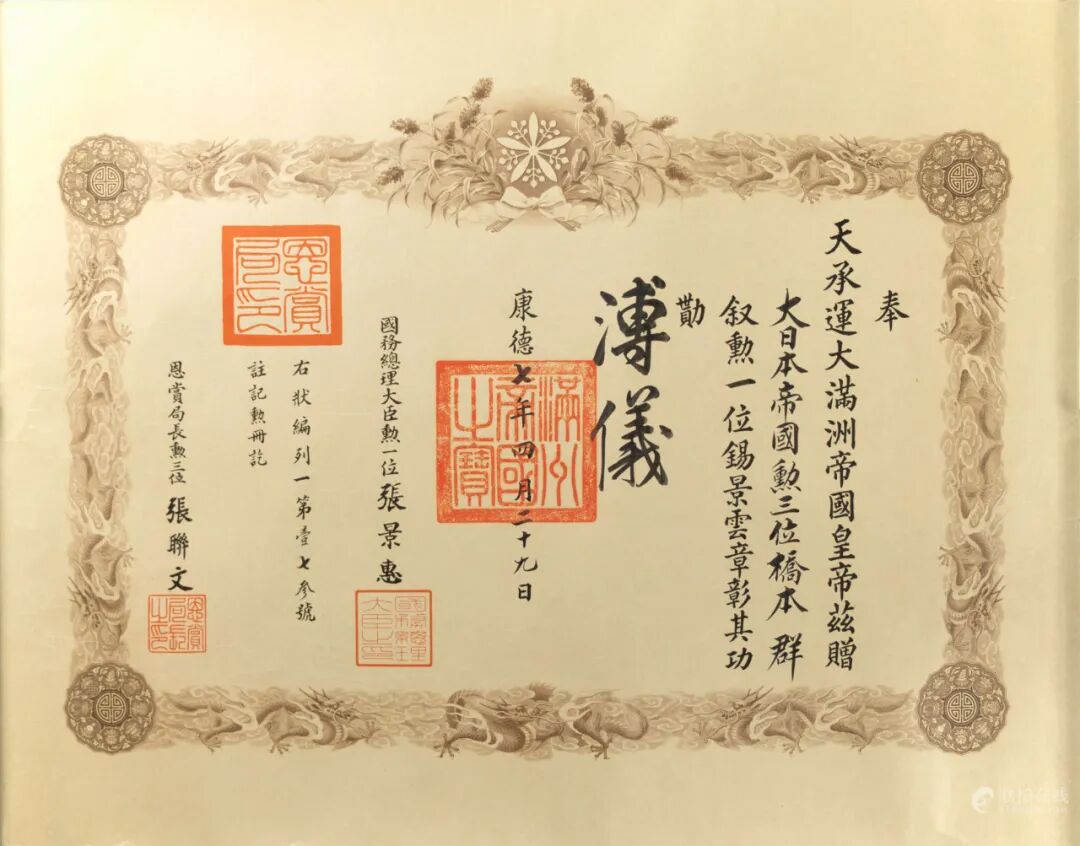 奉
天承運大滿洲帝國皇帝茲贈
大日本帝國勲三位橋本群
叙勲一位錫景雲章彰其功
勲
溥儀
康德七年四月二十九日
滿洲帝國之寶
國務總理大臣勲一位張景惠
右狀編列一第壹七參號
註記勲冊訖
恩賞局之印
恩賞局長勲三位張聯文
恩賞局長之印